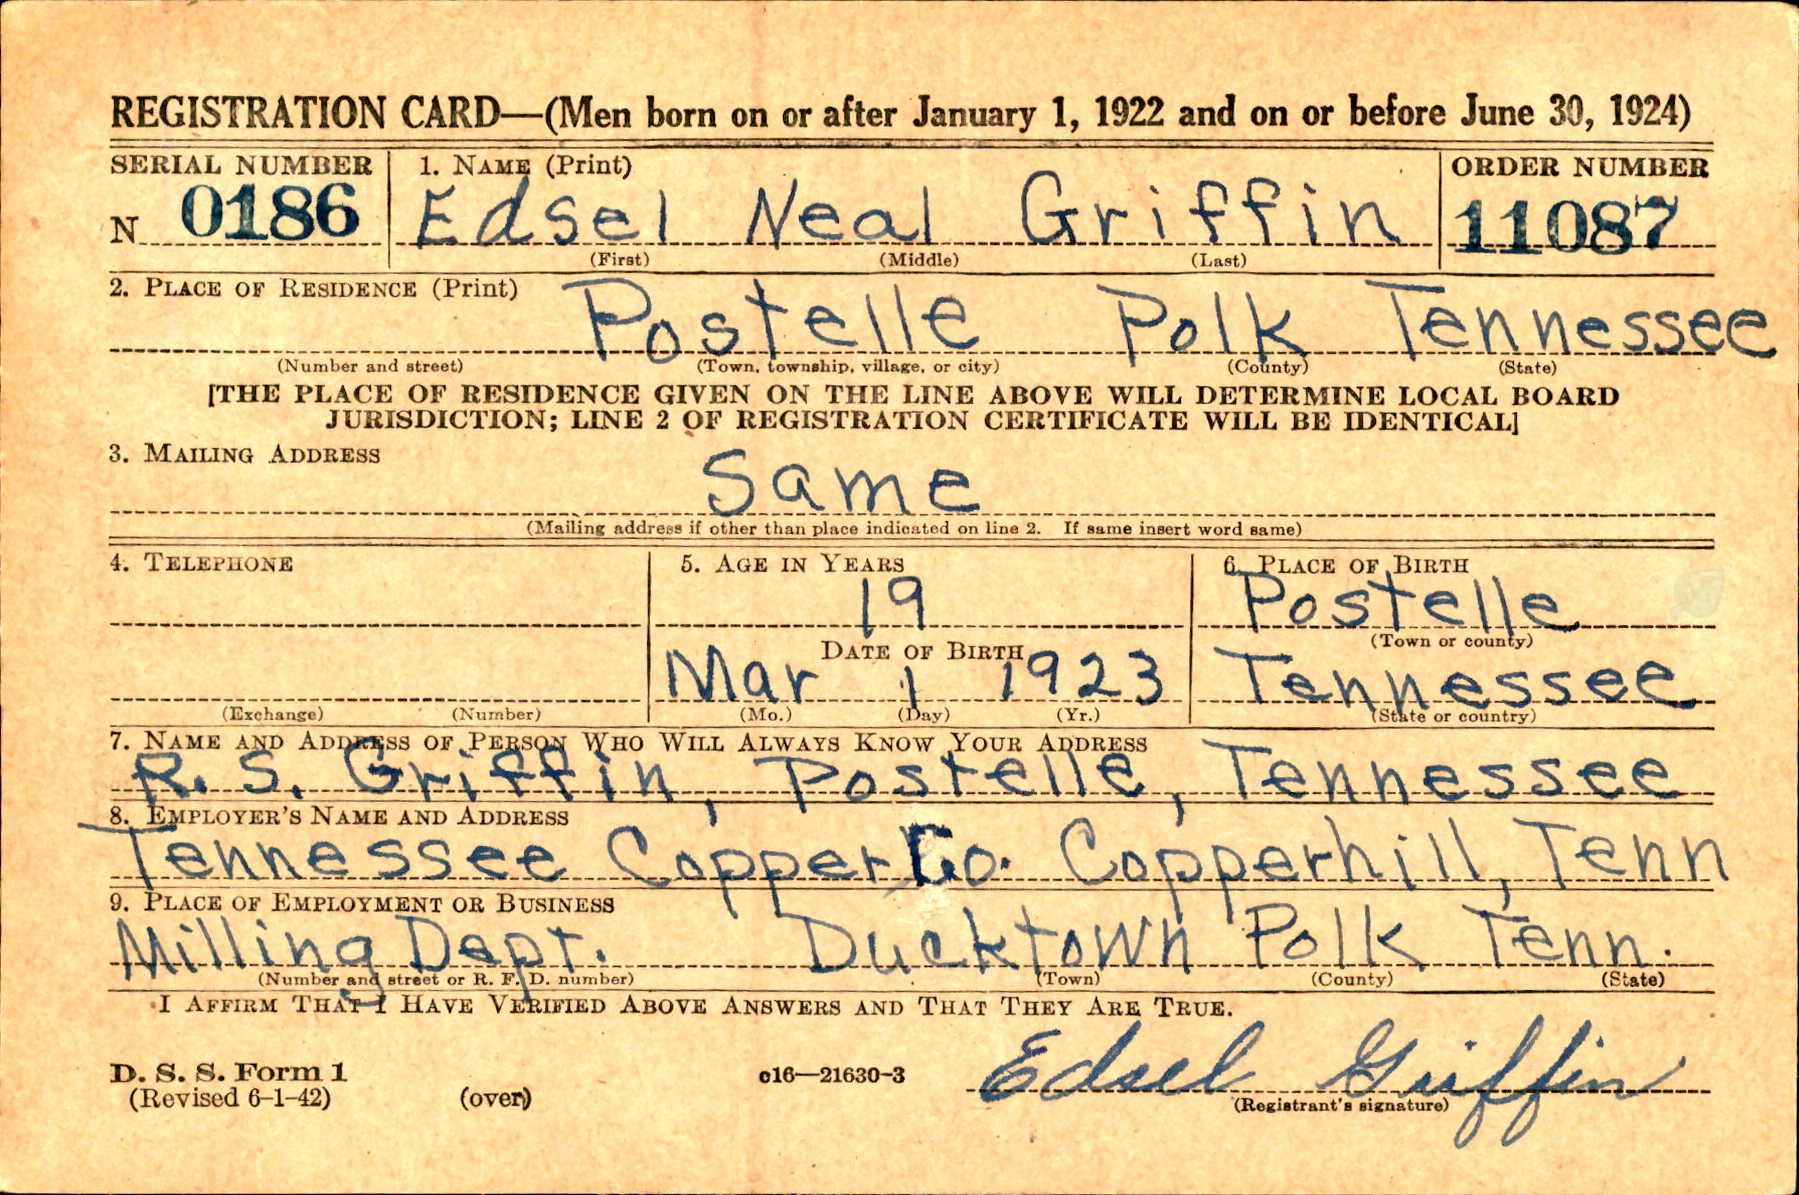 REGISTRATION CARD—(Men born on or after January 1, 1922 and on or before June 30, 1924)
SERIAL NUMBER 1. NAME (Print) ORDER NUMBER
N 0186 Edsel Neal Griffin 11087
(First) (Middle) (Last)
2. PLACE OF RESIDENCE (Print)
Postelle Polk Tennessee
(Number and street) (Town, township, village, or city) (County) (State)
[THE PLACE OF RESIDENCE GIVEN ON THE LINE ABOVE WILL DETERMINE LOCAL BOARD
JURISDICTION; LINE 2 OF REGISTRATION CERTIFICATE WILL BE IDENTICAL]
3. MAILING ADDRESS
Same
(Mailing address if other than place indicated on line 2. If same insert word same)
4. TELEPHONE 5. AGE IN YEARS 6. PLACE OF BIRTH
19 Postelle
(Town or county)
DATE OF BIRTH
Mar 1 1923 Tennessee
(Exchange) (Number) (Mo.) (Day) (Yr.) (State or country)
7. NAME AND ADDRESS OF PERSON WHO WILL ALWAYS KNOW YOUR ADDRESS
R. S. Griffin, Postelle, Tennessee
8. EMPLOYER'S NAME AND ADDRESS
Tennessee Copper Co. Copperhill, Tenn
9. PLACE OF EMPLOYMENT OR BUSINESS
Milling Dept. Ducktown Polk Tenn.
(Number and street or R. F. D. number) (Town) (County) (State)
I AFFIRM THAT I HAVE VERIFIED ABOVE ANSWERS AND THAT THEY ARE TRUE.
D. S. S. Form 1 c16—21630-3 Edsel Griffin
(Revised 6-1-42) (over) (Registrant's signature)